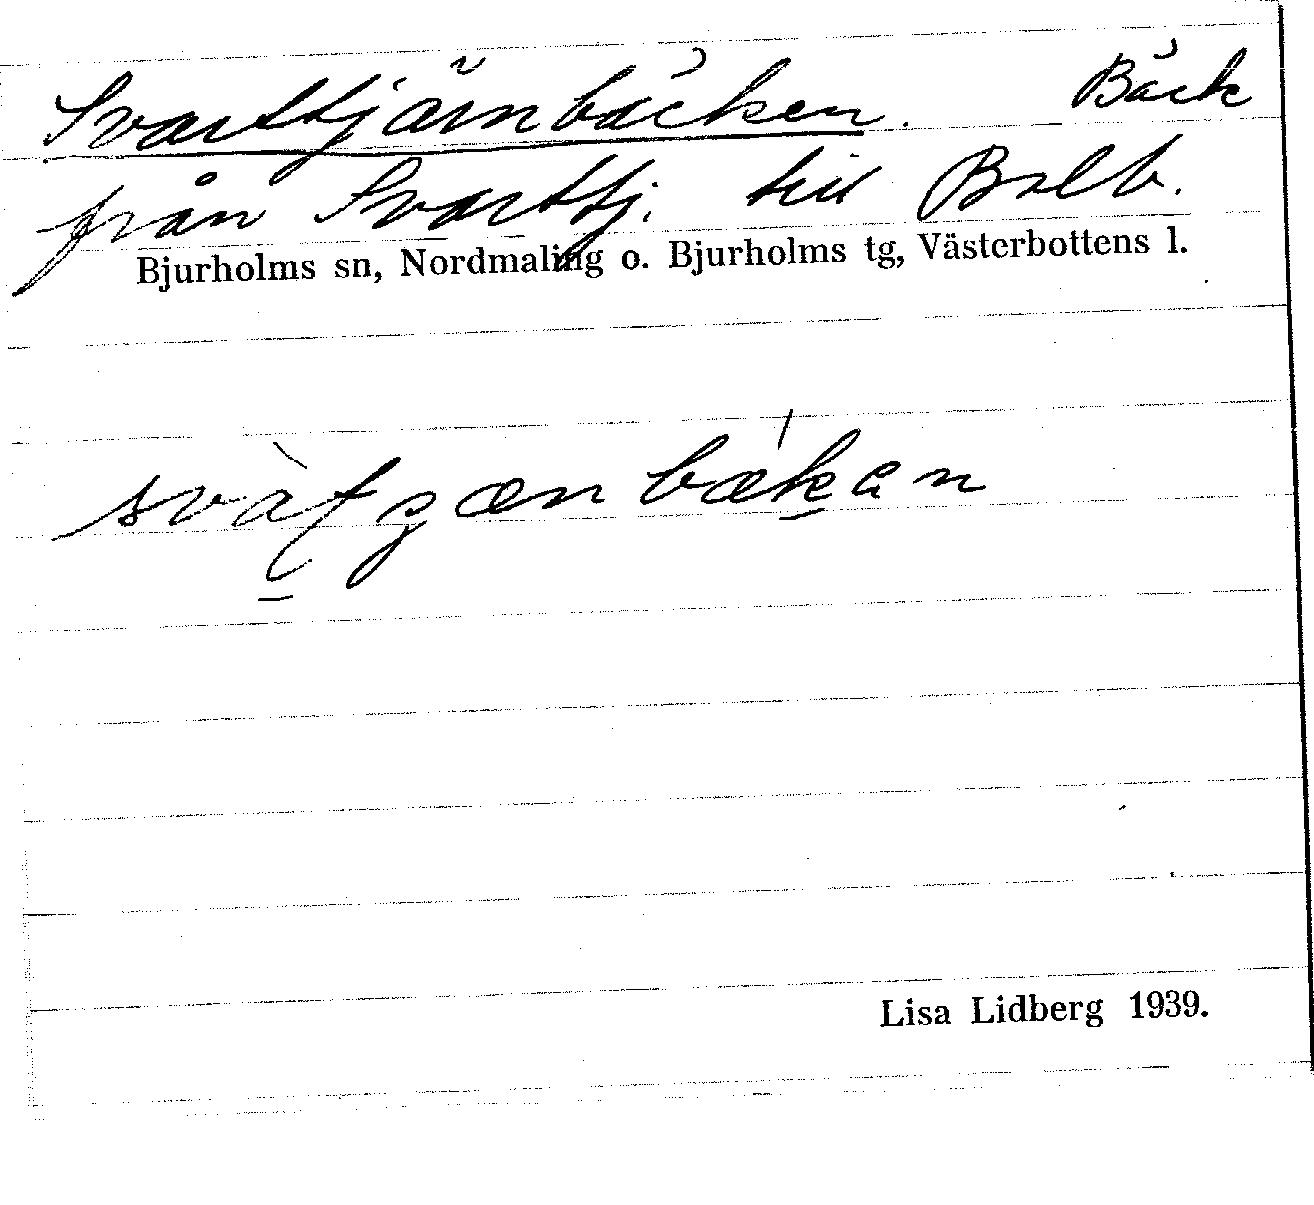 Svarttjärnbäcken. Bäck
från Svarttj. till
Bjurholms sn, Nordmaling o. Bjurholms tg, Västerbottens l.
Lisa Lidberg 1939.